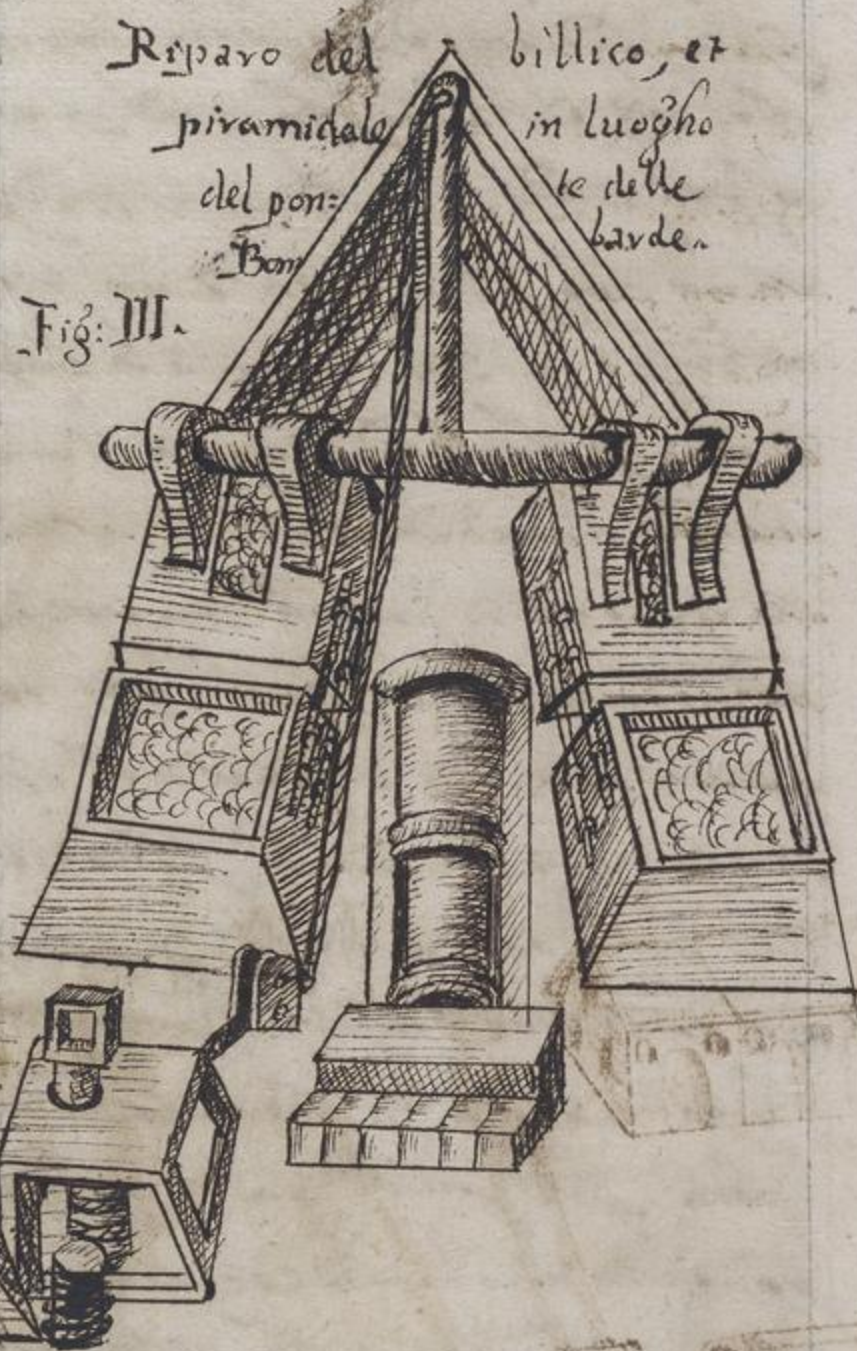 Riparo del billico, et
piramidale in luogho
del pon= te delle
Bom barde.
Fig: III.